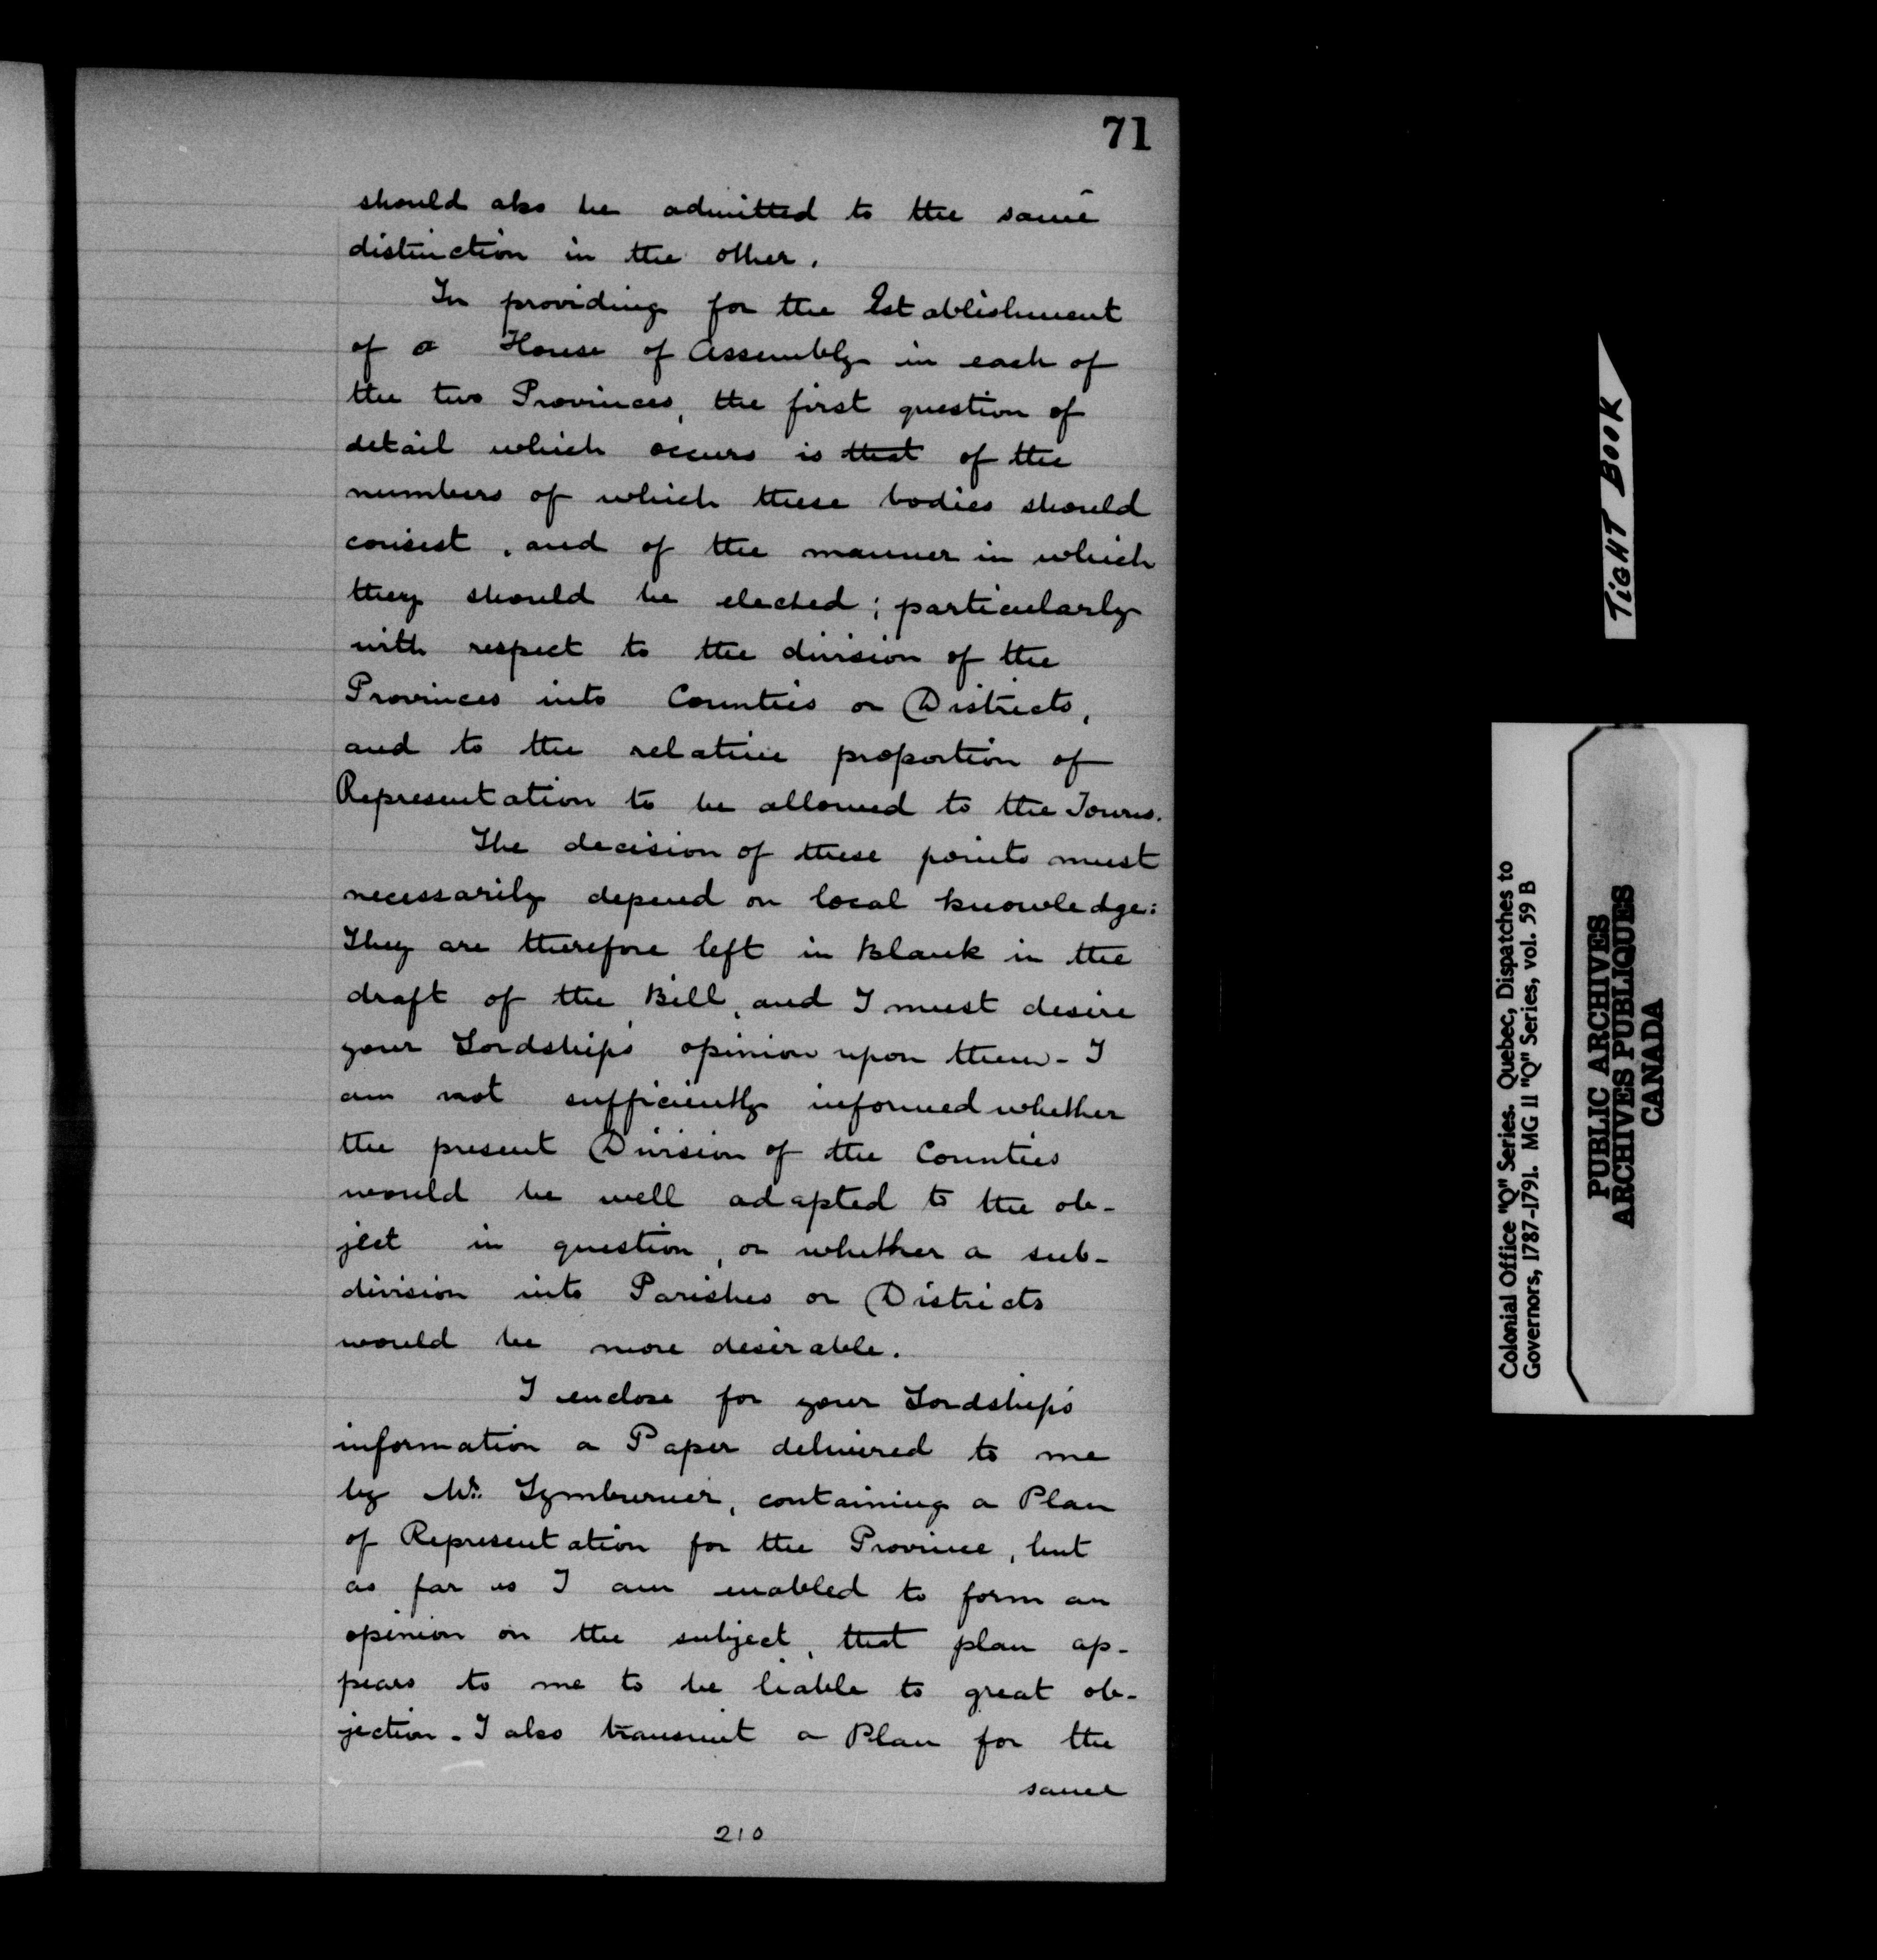 71
should also be admitted to the same
distinction in the other.
In providing for the Establishment
of a House of Assembly in each of
the two Provinces, the first question of
detail which occurs is that of the
numbers of which these bodies should
consist, and of the manner in which
they should be elected; particularly
with respect to the division of the
Provinces into Counties or Districts,
and to the relative proportion of
Representation to be allowed to the Towns.
The decision of these points must
necessarily depend on local knowledge:
They are therefore left in Blank in the
draft of the Bill, and I must desire
your Lordship's opinion upon them - I
am not sufficiently informed whether
the present Division of the Counties
would be well adapted to the ob-
ject in question, or whether a sub-
division into Parishes or Districts
would be more desirable.
I enclose for your Lordship's
information a Paper delivered to me
by Mr. Lymburner, containing a Plan
of Representation for the Province, but
as far as I am enabled to form an
opinion on the subject, that plan ap-
pears to me to be liable to great ob-
jection. I also transmit a Plan for the
same
210
TIGHT BOOK
Colonial Office "Q" Series. Quebec, Dispatches to
Governors, 1787-1791. MG 11 "Q" Series, vol. 59 B
PUBLIC ARCHIVES
ARCHIVES PUBLIQUES
CANADA